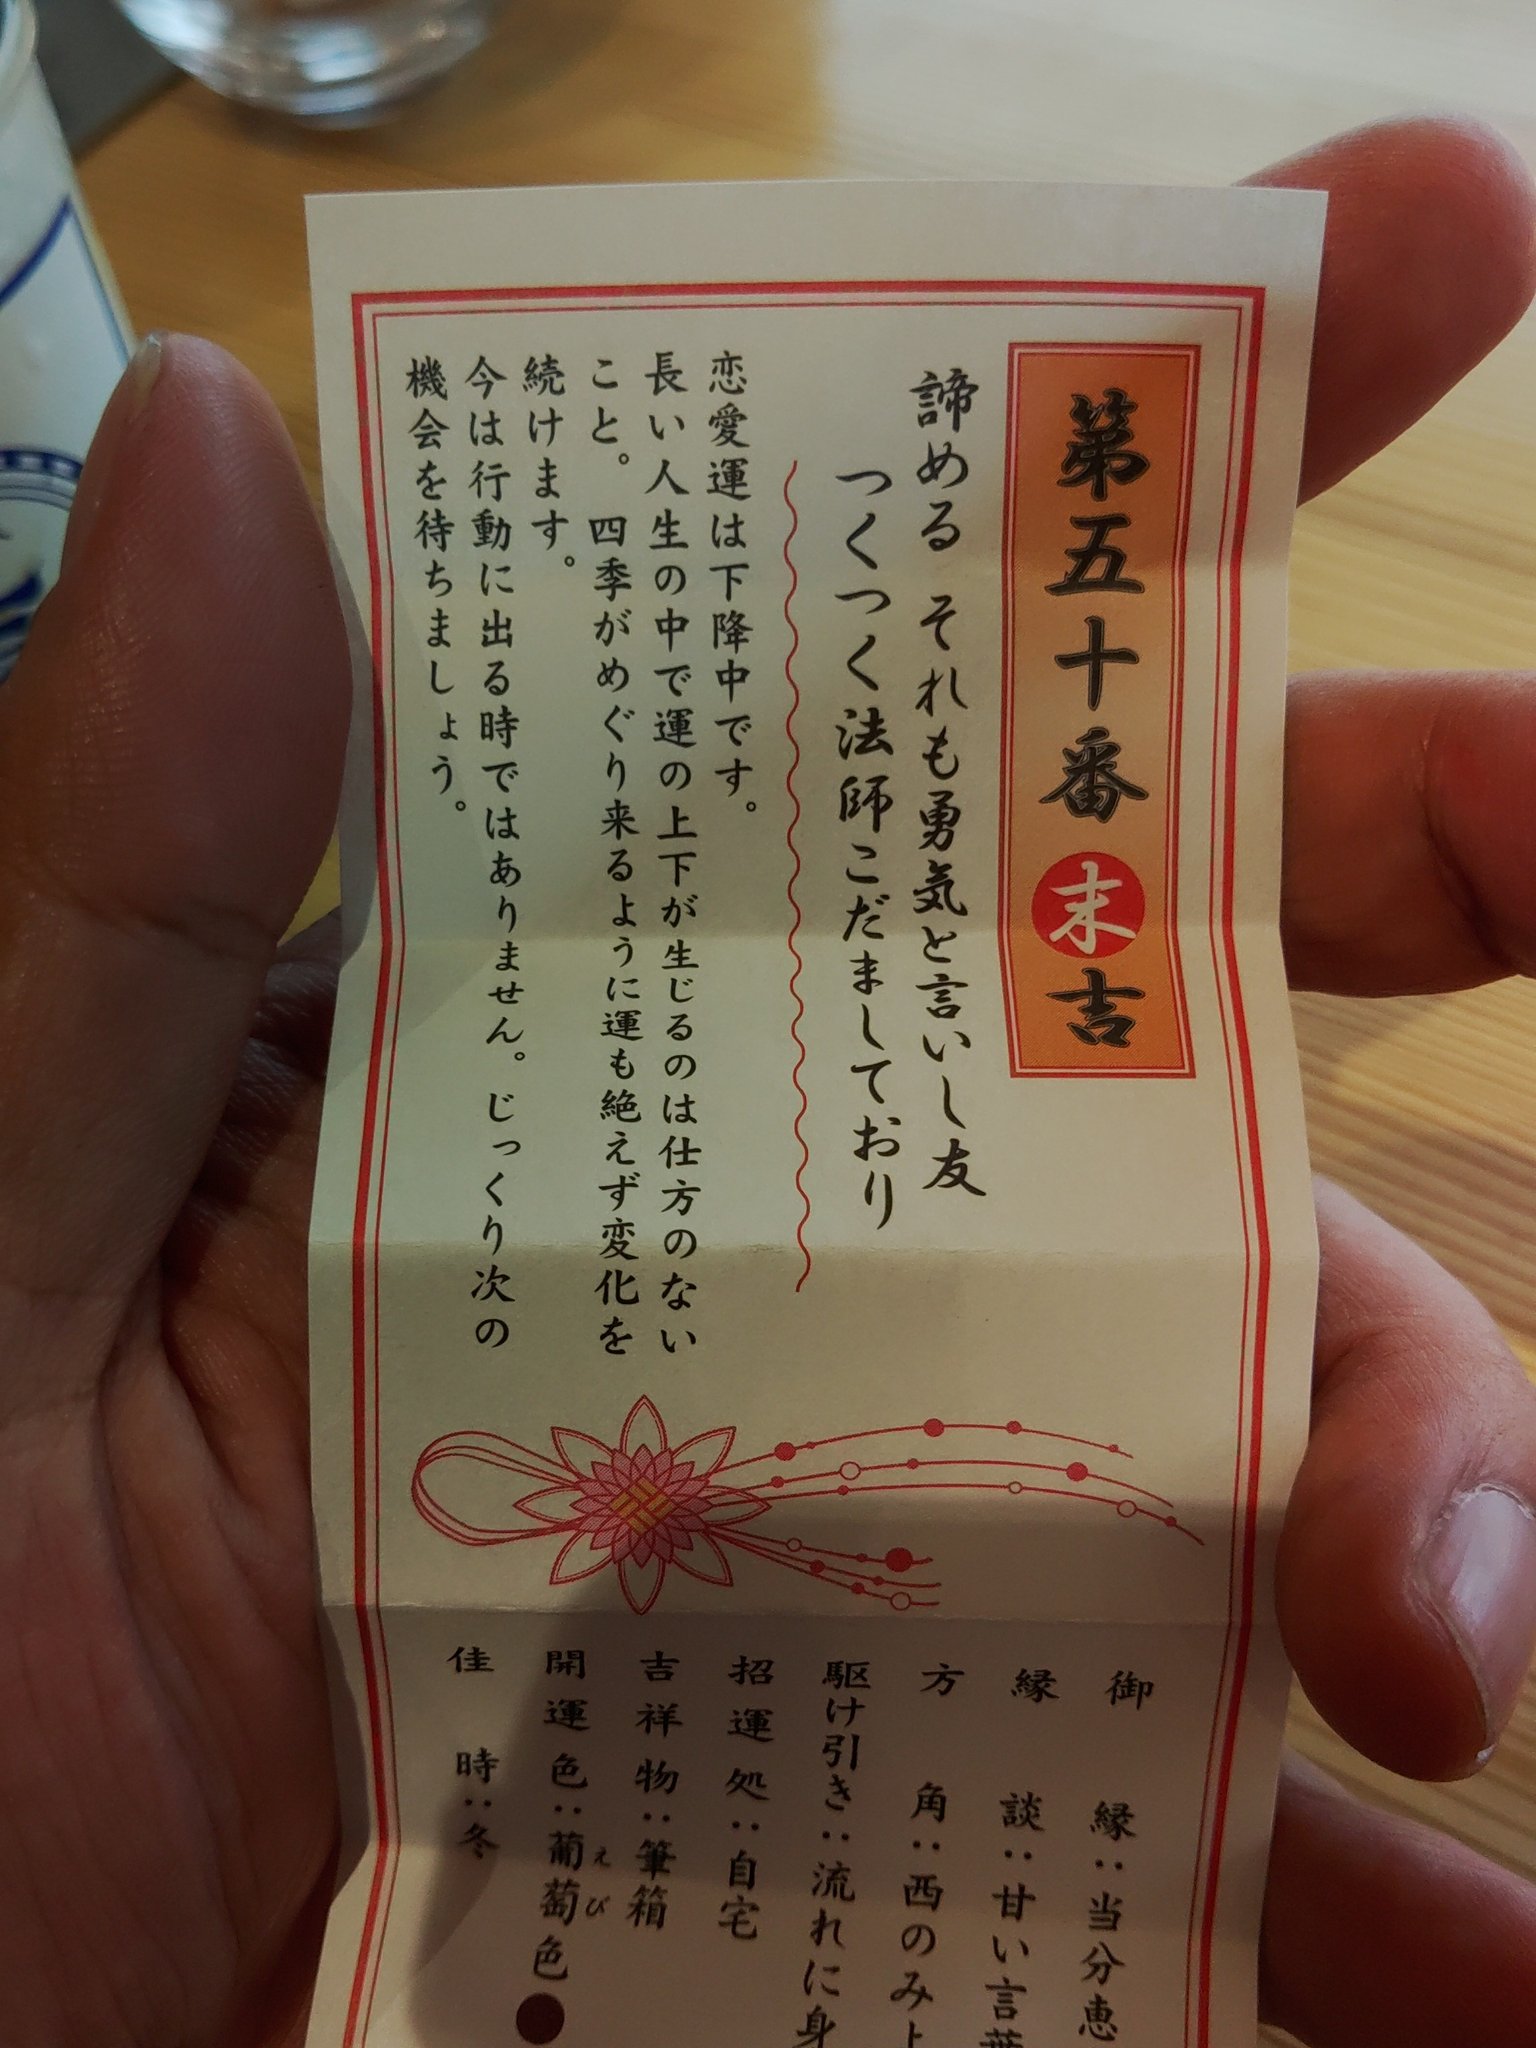 第五十番 末吉
諦める それも勇気と言いし友
つくつく法師こだましており
恋愛運は下降中です。
長い人生の中で運の上下が生じるのは仕方のない
こと。四季がめぐり来るように運も絶えず変化を
続けます。
今は行動に出る時ではありません。じっくり次の
機会を待ちましょう。
御縁：当分恵
縁談：甘い言葉
方角：西のみ
駆け引き：流れに身
招運処：自宅
吉祥物：筆箱
開運色：葡萄色
えび
佳時：冬